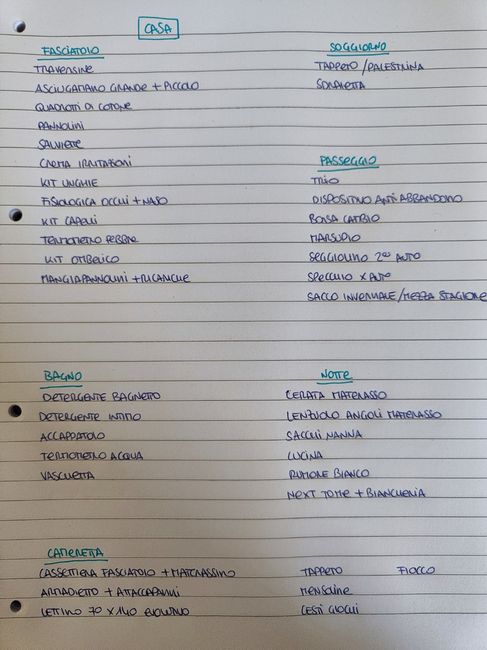 CASA
FASCIATOIO
TRAVERSINE
ASCIUGAMANO GRANDE + PICCOLO
QUADROTTI DI COTONE
PANNOLINI
SALVIETTE
CREMA IRRITAZIONI
KIT UNGHIE
FISIOLOGICA OCCHI + NASO
KIT CAPELLI
TERMOMETRO FEBBRE
KIT OMBELICO
MANGIAPANNOLINI + RICARICHE
SOGGIORNO
TAPPETO / PALESTRINA
SDRAIETTA
PASSEGGIO
TRIO
DISPOSITIVO ANTI ABBANDONO
BORSA CAMBIO
MARSUPIO
SEGGIOLINO 2ª AUTO
SPECCHIO X AUTO
SACCO INVERNALE/MEZZA STAGIONE
BAGNO
DETERGENTE BAGNETTO
DETERGENTE INTIMO
ACCAPPATOIO
TERMOMETRO ACQUA
VASCHETTA
NOTTE
CERATA MATERASSO
LENZUOLO ANGOLI MATERASSO
SACCHI NANNA
LUCINA
RUMORE BIANCO
NEXT TO ME + BIANCHERIA
CAMERETTA
CASSETTIERA FASCIATOIO + MATERASSINO
ARMADIETTO + ATTACCAPANNI
LETTINO 70 X 140 EVOLUTIVO
TAPPETO FIOCCO
MENSOLINE
CESTI GIOCHI